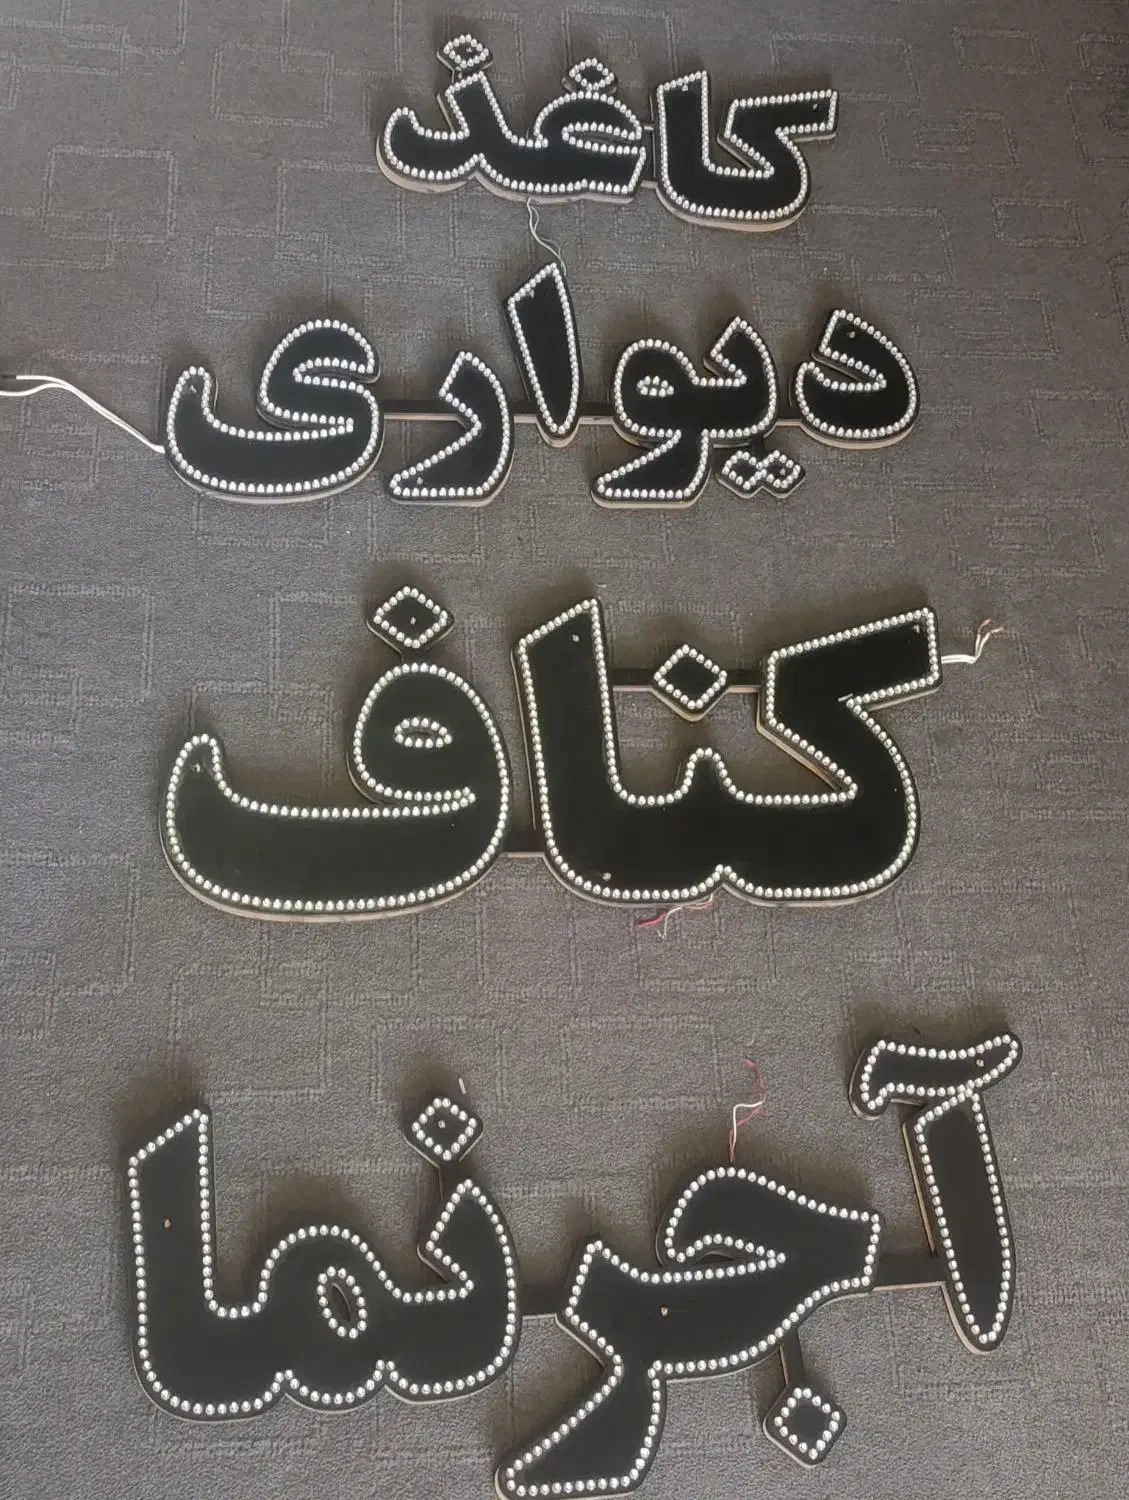 کاغذ
دیواری
کناف
آجرنما